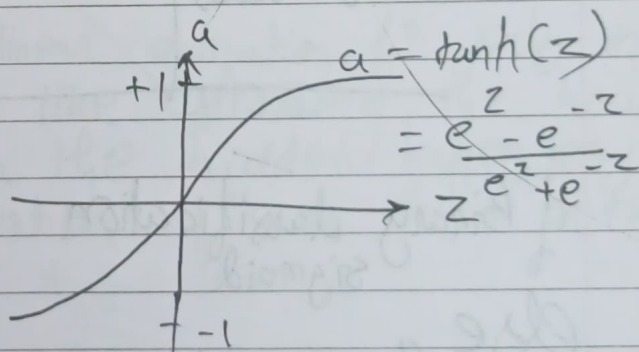 a
+1
a = tanh(z)
= e^z - e^-z
e^z + e^-z
z
-1